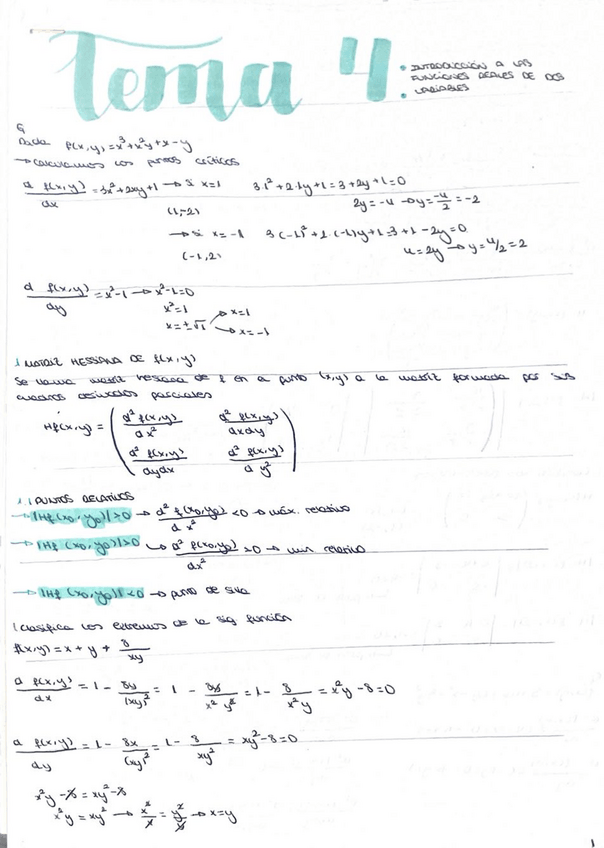 Tema 4
• INTRODUCCIÓN A LAS
FUNCIONES REALES DE DOS
• VARIABLES
Dada f(x,y)=x³+x²y+x-y
→ calculamos los puntos críticos
d f(x,y)/dx = 3x²+2xy+1 → si x=1 3·1²+2·1y+1=3+2y+1=0
2y=-4 → y=-4/2=-2
(1,-2)
→ si x=-1 3(-1)²+2·(-1)y+1=3+1-2y=0
4=2y → y=4/2=2
(-1,2)
d f(x,y)/dy = x²-1 → x²-1=0
x²=1
x=±√1 → x=1
→ x=-1
1 MATRIZ HESSIANA DE f(x,y)
Se llama matriz hessiana de f en el punto (x,y) a la matriz formada por sus
cuadros derivados parciales
Hf(x,y) = ( d² f(x,y)/dx² d² f(x,y)/dxdy
d² f(x,y)/dydx d² f(x,y)/dy² )
1.1 PUNTOS RELATIVOS
→ |Hf (x₀,y₀)|>0 → d² f(x₀,y₀)/dx² <0 → máx. relativo
→ |Hf (x₀,y₀)|>0 → d² f(x₀,y₀)/dx² >0 → min relativo
→ |Hf (x₀,y₀)|<0 → punto de silla
1 clasifica los extremos de la sig función
f(x,y) = x + y + 8/xy
d f(x,y)/dx = 1 - 8y/(xy)² = 1 - 8y/x²y² = 1 - 8/x²y = x²y-8=0
d f(x,y)/dy = 1 - 8x/(xy)² = 1 - 8/xy² = xy²-8=0
x²y-8 = xy²-8
x²y = xy² → x²/x = y²/y → x=y
1